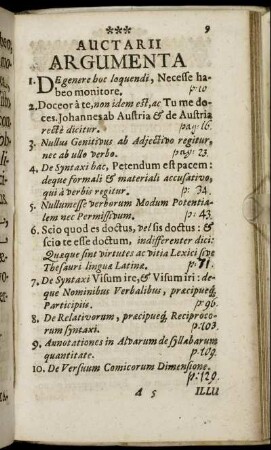 *** 9
AUCTARII
ARGUMENTA
1. DE genere hoc loquendi, Necesse ha-
beo monitore. p: 10
2. Doceor à te, non idem est, ac Tu me do-
ces. Johannes ab Austria & de Austria
rectè dicitur. pag: 16.
3. Nullus Genitivus ab Adjectivo regitur,
nec ab ullo verbo. pag: 23.
4. De Syntaxi hac, Petendum est pacem:
deque formali & materiali accusativo,
qui à verbis regitur. p: 34.
5. Nullumesse verborum Modum Potentia-
lem nec Permissivum. p: 43.
6. Scio quod es doctus, vel sis doctus: &
scio te esse doctum, indifferenter dici:
Quæque sint virtutes ac vitia Lexici sive
Thesauri linguæ Latinæ. p: 71.
7. De Syntaxi Visum ire, & Visum iri: de-
que Nominibus Verbalibus, præcipueq;
Participiis. p: 96.
8. De Relativorum, præcipueq; Reciproco-
rum syntaxi. p: 103.
9. Annotationes in Alvarum de syllabarum
quantitate. p: 109.
10. De Versuum Comicorum Dimensione.
p: 129.
A 5 ILLU